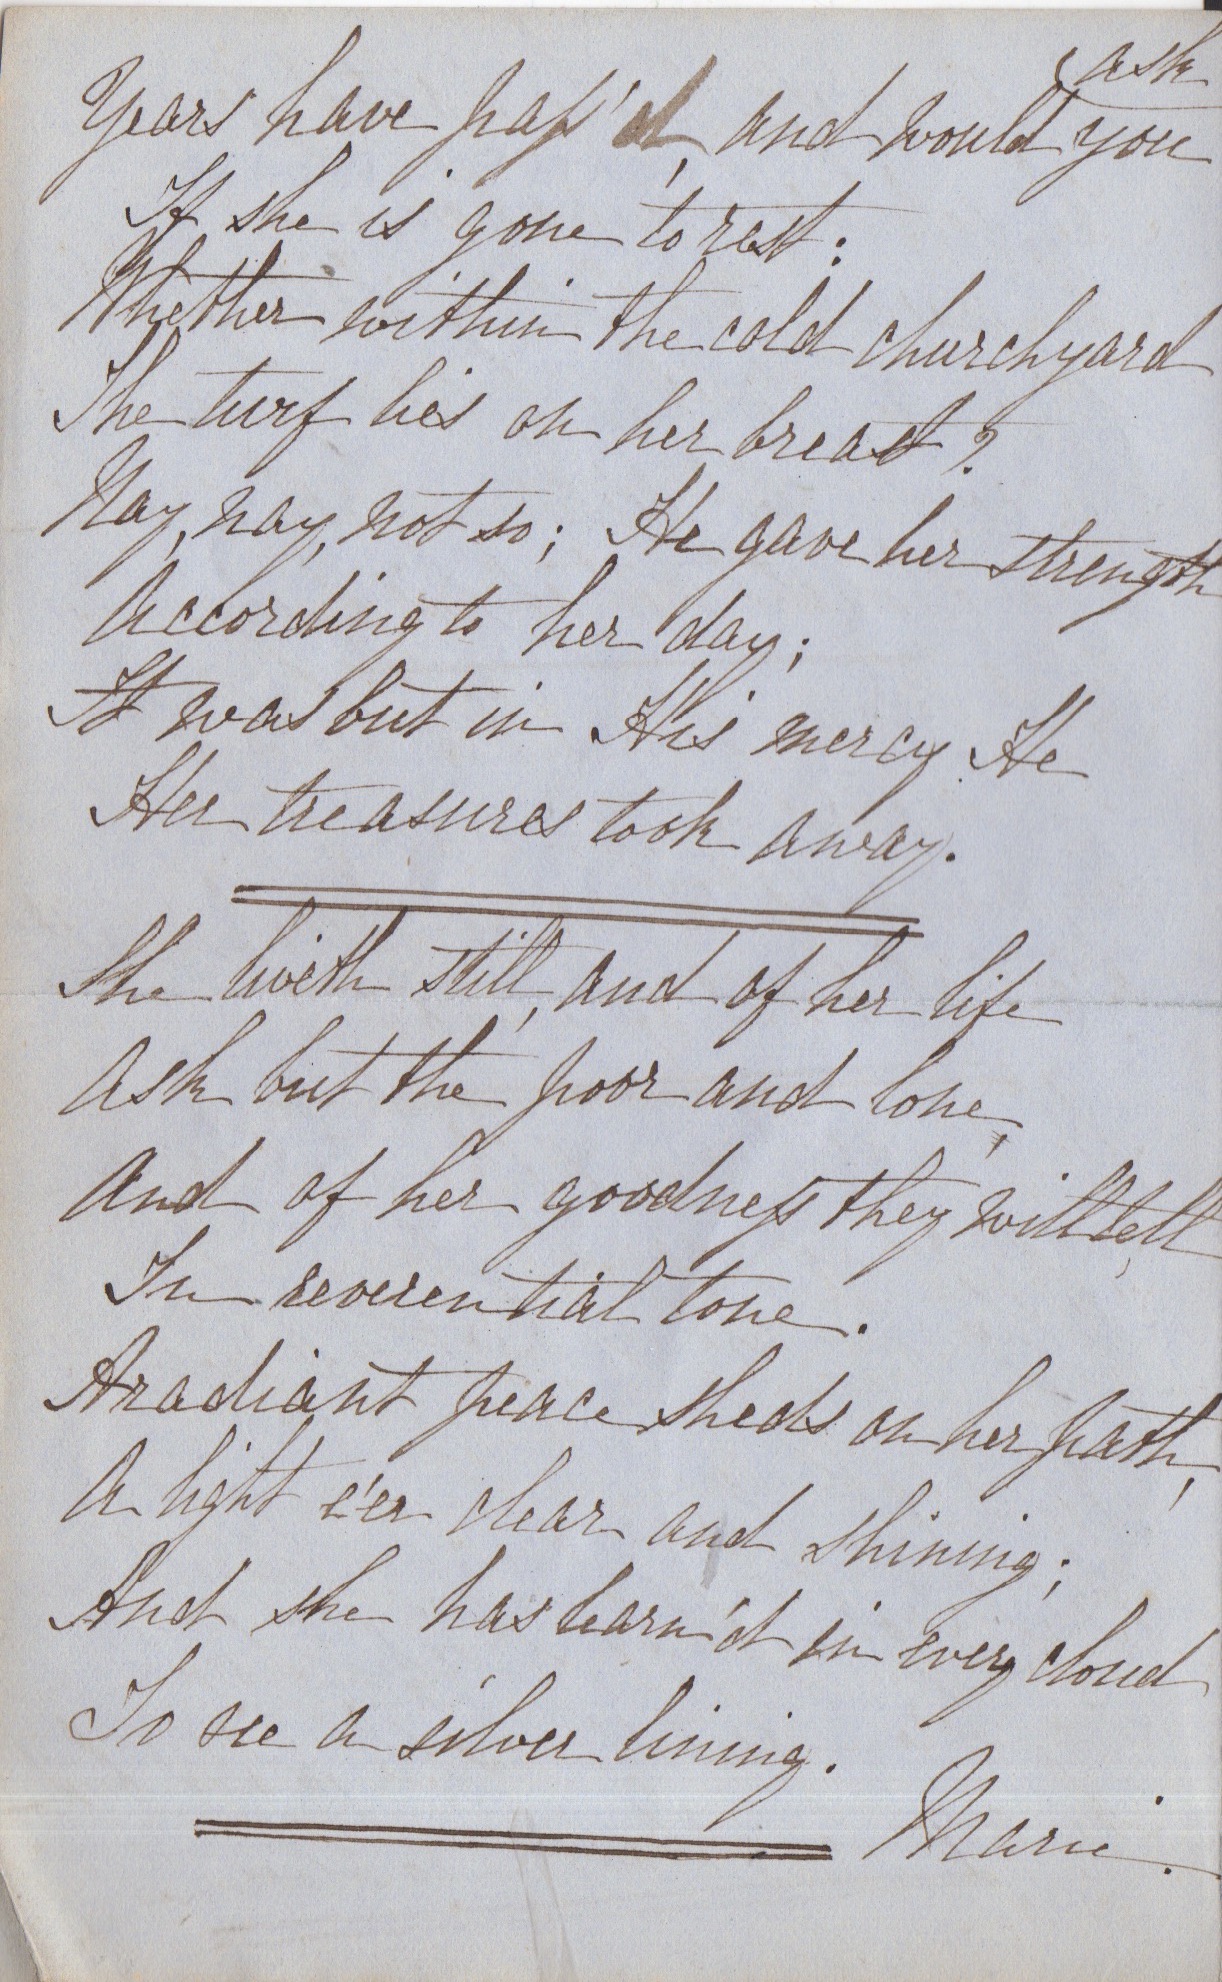 ask
Years have pass'd, and would you
If she is gone to rest:
Whether within the cold churchyard
The turf lies on her breast?
Nay, nay, not so; He gave her strength
According to her day;
It was but in His mercy He
Her treasures took away.
She liveth still, and of her life
Ask but the poor and lone,
And of her goodness they will tell
In reverential tone.
A radiant peace sheds on her path,
A light e'er clear and shining;
And she has learn'd in every cloud
To see a silver lining.
Marie.